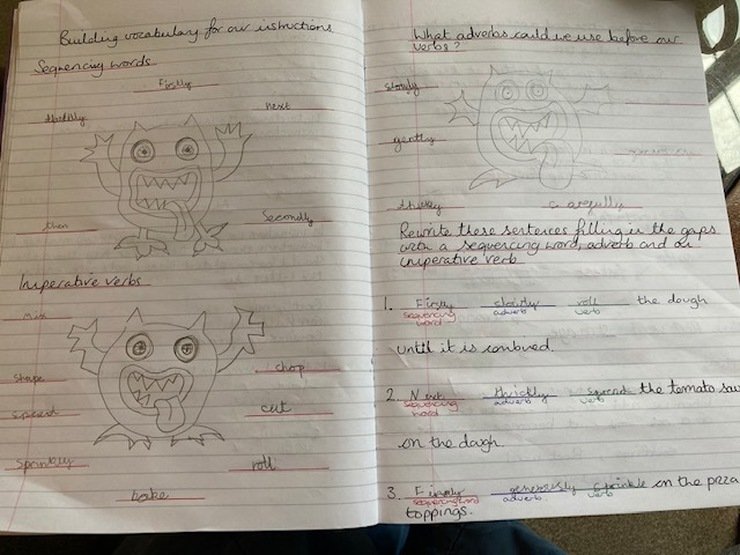 Building vocabulary for our instructions.
Sequencing words
Firstly
next
thirdly
then
Secondly
Imperative verbs
Mix
chop
Shape
spread
cut
sprinkly
roll
bake
What adverbs could we use before our
verbs?
Slowly
gently
thickly
carefully
Rewrite these sentences filling in the gaps
with a sequencing word, adverb and an
imperative verb
1. Firstly slowly roll the dough
sequencing word adverb verb
until it is combined.
2. Next thickly spread the tomato sau
sequencing word adverb verb
on the dough
3. Finaly generously sprinkle on the pizza
sequencing word adverb verb
toppings.